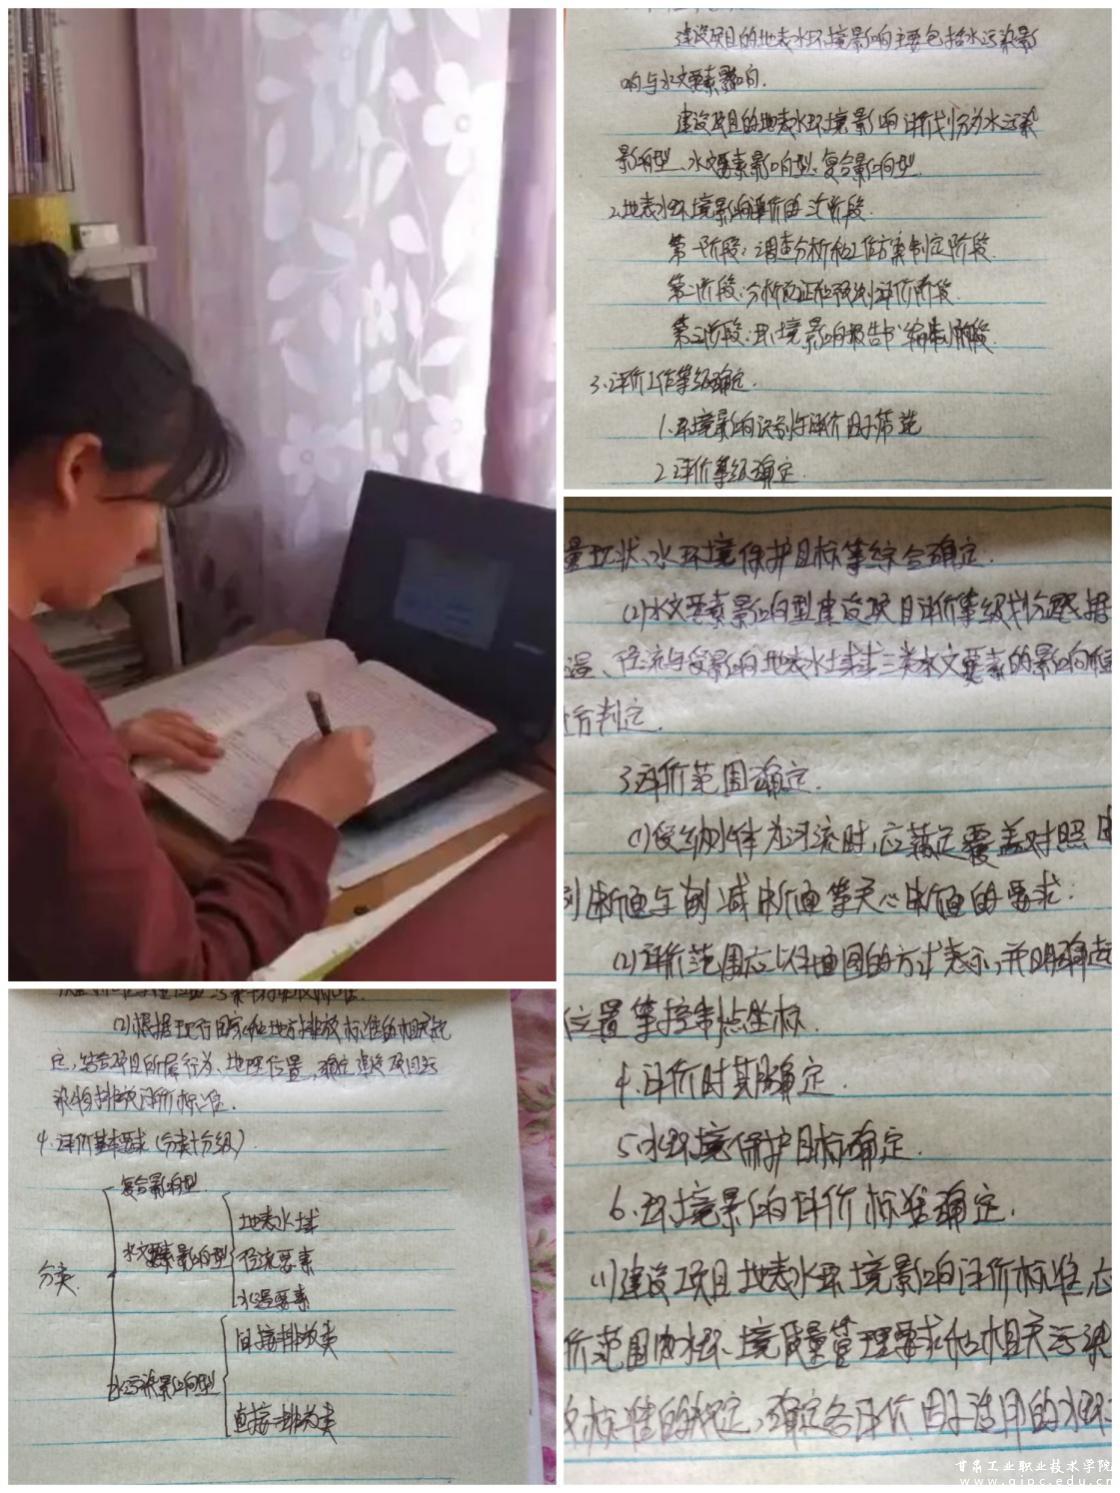 建设项目的地表水环境影响主要包括水污染影
响与水文要素影响.
建设项目的地表水环境影响评价划分为水污染
影响型、水文要素影响型、复合影响型.
2.地表水环境影响评价的工作阶段.
第一阶段:调查分析和工作方案制定阶段.
第二阶段:分析论证和预测评价阶段.
第三阶段:环境影响报告书编制阶段.
3.评价工作等级确定.
1.环境影响识别与评价因子筛选
2.评价等级确定.
量现状、水环境保护目标等综合确定.
(2)水文要素影响型建设项目评价等级划分根据
温、径流与受影响地表水域三类水文要素的影响程
行判定.
3.评价范围确定.
(1)受纳水体为河流时,应满足覆盖对照
断面与削减断面等关心断面的要求.
(2)评价范围应以平面图的方式表示,并明确起
位置等控制点坐标.
4.评价时期确定.
5.水环境保护目标确定.
6.环境影响评价标准确定.
(1)建设项目地表水环境影响评价标准应
价范围内水环境质量管理要求和相关污染
标准的规定,确定各评价因子适用的水环
(2)根据现行国家和地方排放标准的相关规
定,结合项目所属行业、地理位置,确定建设项目污
染物排放评价标准.
4.评价基本要求(分类+分级).
分类
复合影响型
水文要素影响型
地表水域
径流要素
水温要素
水污染影响型
间接排放类
直接排放类
甘肃工业职业技术学院
www.gipc.edu.cn